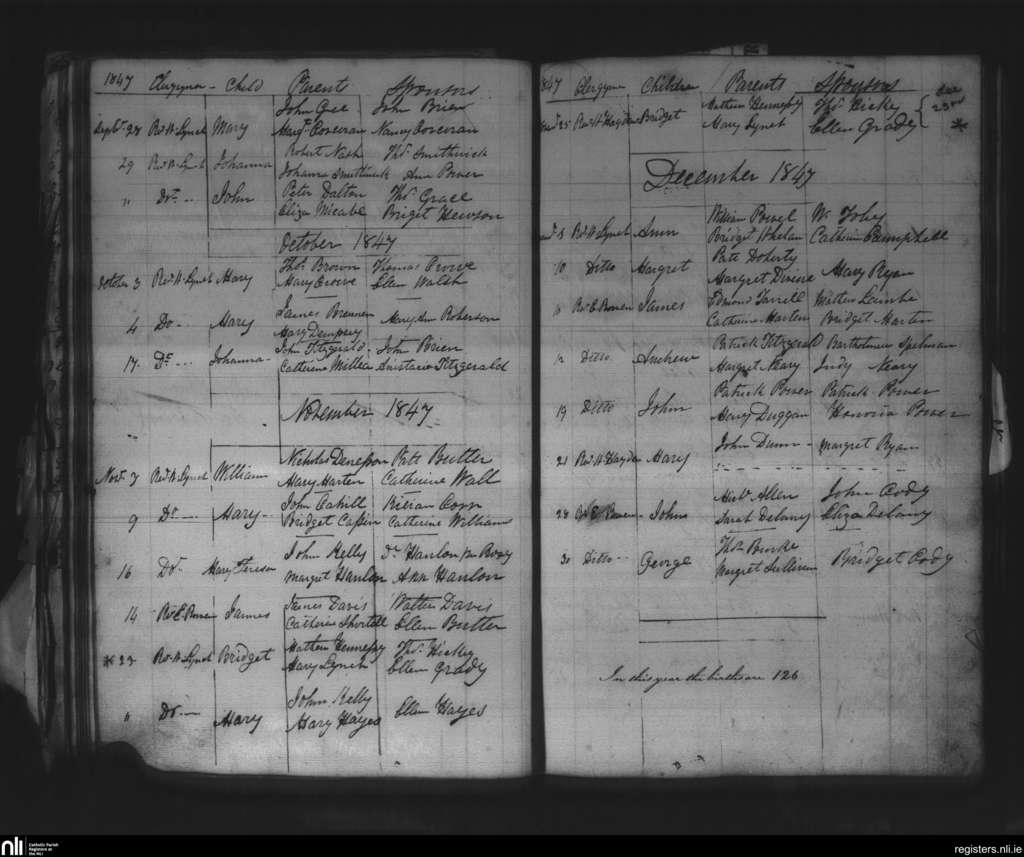 1847 Clergyman Child Parents Sponsors
John Gee John Brien
Septbr 28 Revd W. Lynch Mary Margt Corcoran Nancy Corcoran
Robert Nash Thos Smithwick
29 Revd W. Lynch Johanna Johanna Smithwick Ann Power
" Do John Peter Dalton Thos Grace
Eliza Micabe Briget Hewson
October 1847
Thos Brown Thomas Crowe
October 3 Revd W. Lynch Mary Mary Crowe Ellen Walsh
James Brennan
4 Do Mary Mary Dempsey Mary Ann Roberson
John Fitzgerald John Brien
17 Do Johanna Catherine Anastasia Fitzgerald
November 1847
Nicholas Patt Butler
Novr 7 Revd W. Lynch William Mary Harten Catherine Wall
John Cahill Kerian
9 Do Mary Bridget Catherine William
John Kelly Dr Hanlon
16 Do Mary Teresa Margret Hanlon Ann Hanlon
James Davis Walter Davis
14 Revd E. Bowen James Catherine Shortell Ellen Butler
Mathew Hennessy Thos Hickey
* 23 Revd W. Lynch Bridget Mary Lynch Ellen Grady
John Kelly
" Do Mary Mary Hayes Ellen Hayes
1847 Clergyman Children Parents Sponsors
Mathew Hennessy Thos Hickey { See 23rd
25 Revd W. Hayden Bridget Mary Lynch Ellen Grady *
December 1847
William Powel Wm Foley
8 Revd W. Lynch Ann Bridget Whelan Catherine Camphell
Patt Doherty
10 Ditto Margret Margret Divine Mary Ryan
Edmond Farrell Mathew Lambe
" Revd E. Bowen James Catherine Martin Bridget Martin
Patrick Fitzgerald Bartholmew Spelman
12 Ditto Andrew Margret Neary Judy Neary
Patrick Power Patrick Power
19 Ditto John Mary Duggan Honoria Power
John Dunn Margret Ryan
21 Revd W. Hayden Mary
Michl Allen John Cody
28 Revd E. Bowen John Sarah Delany Eliza Delany
Thos Burke
30 Ditto George Margret Sullivan Bridget Cody
In this year the births are 126
nli Catholic Parish
Registers at
the NLI
registers.nli.ie